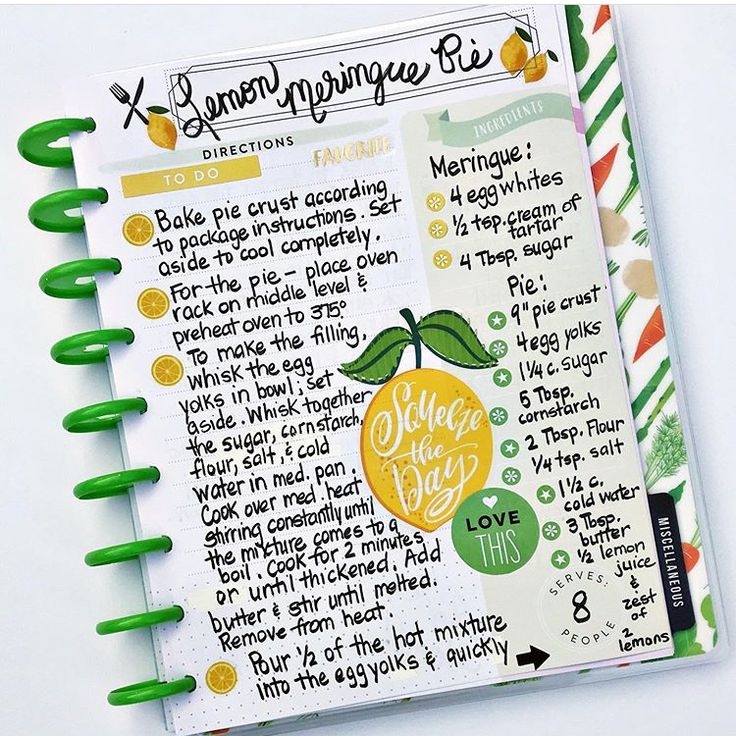 Lemon Meringue Pie
DIRECTIONS
TO DO
FAVORITE
Bake pie crust according
to package instructions. Set
aside to cool completely.
For the pie - place oven
rack on middle level &
preheat oven to 375°
To make the filling,
whisk the egg
yolks in bowl; set
aside. Whisk together
the sugar, cornstarch,
flour, salt, & cold
water in med. pan.
Cook over med. heat
stirring constantly until
the mixture comes to a
boil. Cook for 2 minutes
or until thickened. Add
butter & stir until melted.
Remove from heat.
Pour 1/2 of the hot mixture
into the egg yolks & quickly
INGREDIENTS
Meringue:
4 egg whites
1/2 tsp. cream of
tartar
4 Tbsp. sugar
Pie:
9" pie crust
4 egg yolks
1 1/4 c. sugar
5 Tbsp.
cornstarch
2 Tbsp. Flour
1/4 tsp. salt
1 1/2 c.
cold water
3 Tbsp.
butter
1/2 lemon
juice
&
zest
of
2
lemons
Squeeze
the
Day
LOVE
THIS
SERVES:
8
PEOPLE
MISCELLANEOUS